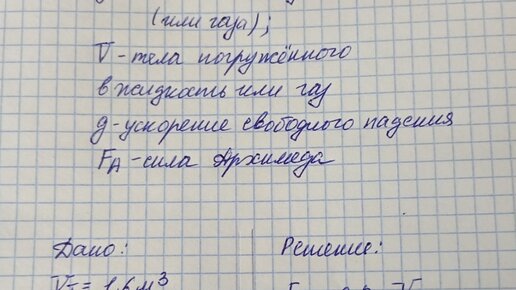 (или газа);
V - тела погружённого
в жидкость или газ
g - ускорение свободного падения
FА - сила Архимеда
Дано: Решение:
Vт = 1,6 м³